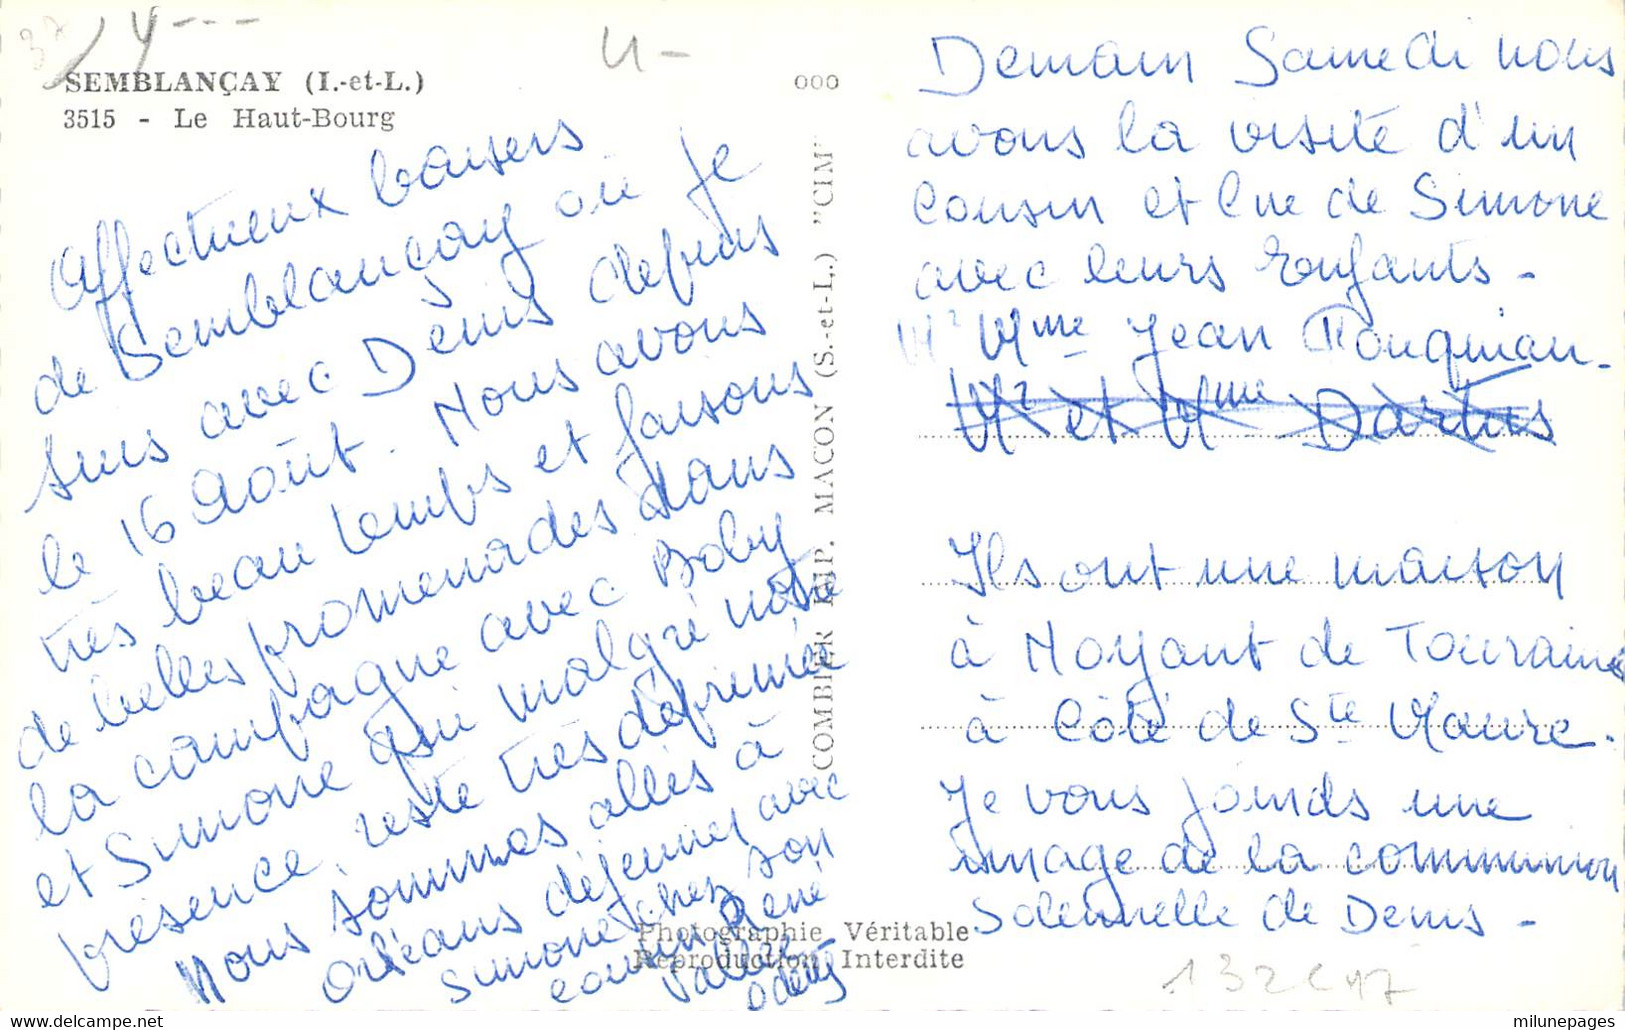 37
4---
4-
SEMBLANÇAY (I.-et-L.)
3515 - Le Haut-Bourg
000
Affectueux baisers
de Semblançay où je
suis avec Denis depuis
le 16 Août. Nous avons
très beau temps et faisons
de belles promenades dans
la campagne avec Boby
et Simone qui malgré notre
présence, reste très déprimée
Nous sommes allés à
Orléans déjeuner avec
Simone chez son
cousin René
COMBIER IMP. MACON (S.-et-L.) "CIM"
Photographie Véritable
Reproduction Interdite
Demain Samedi nous
avons la visite d'un
Cousin et Cne de Simone
avec leurs Enfants -
Mr Mme Jean
Mr et Mme
Ils ont une maison
à Noyant de Touraine
à Côté de Ste Maure.
Je vous joinds une
image de la communion
Solennelle de Denis -
milunepages